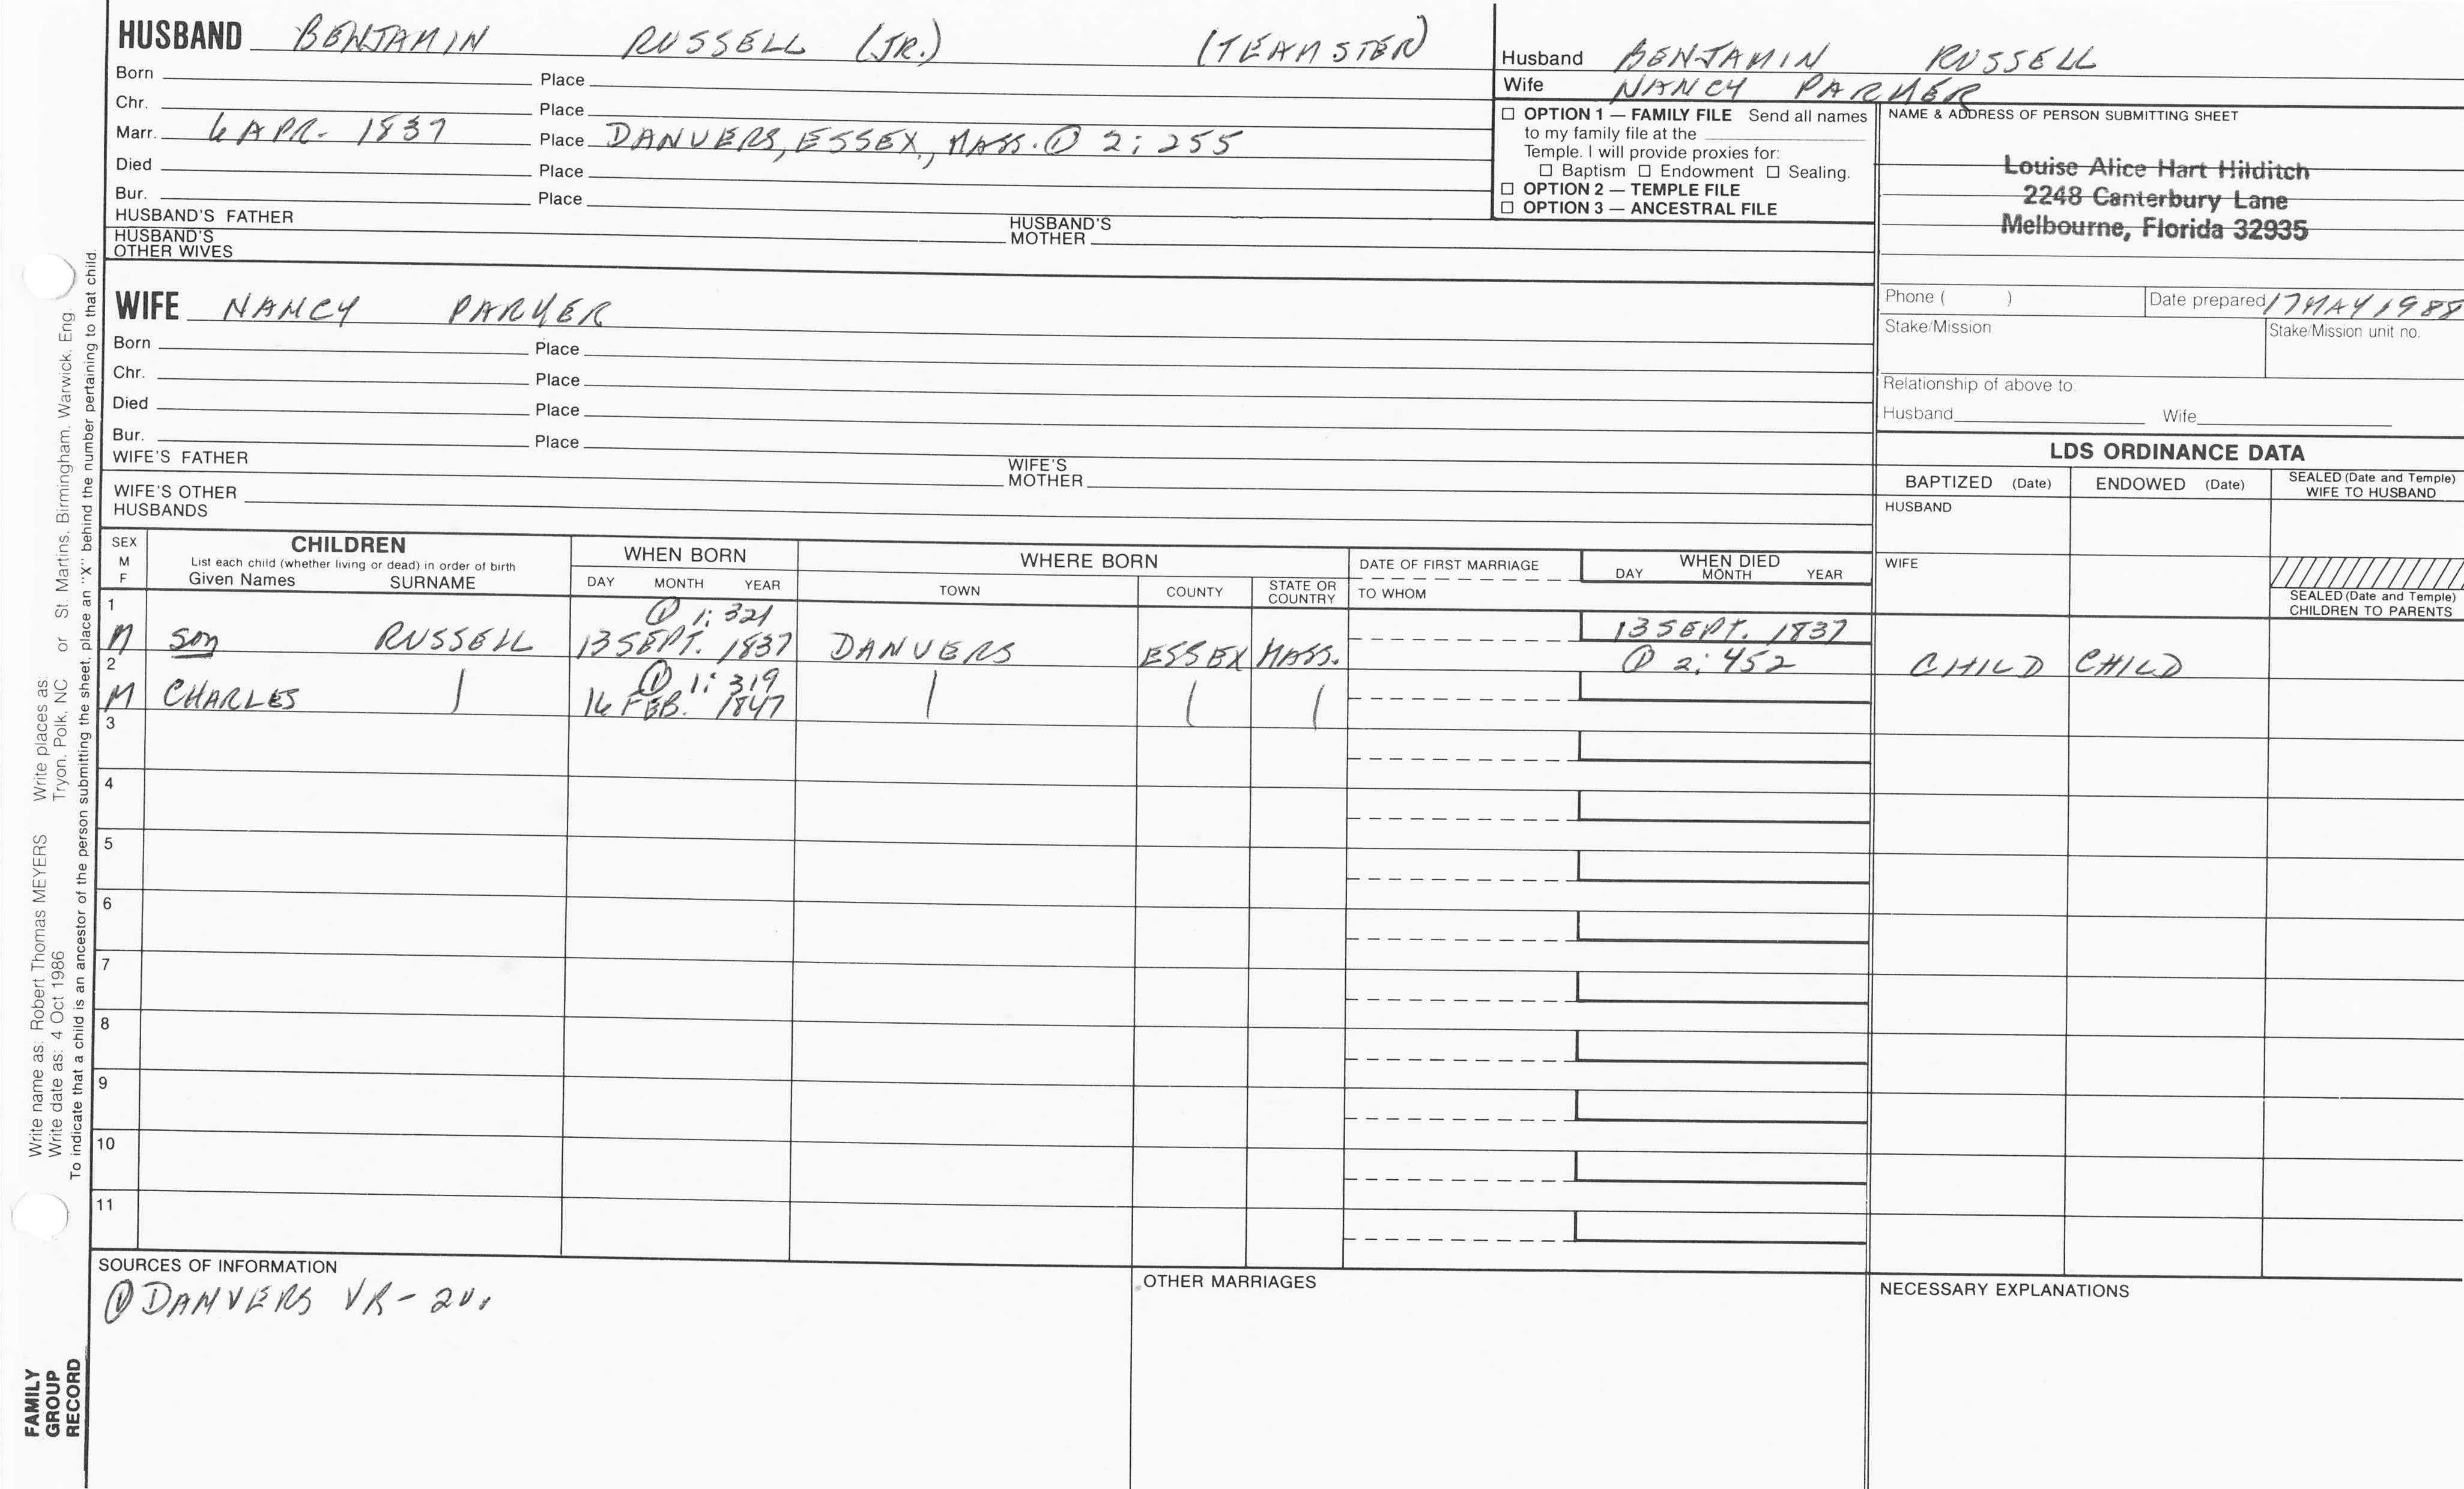 HUSBAND BENJAMIN RUSSELL (JR.) (TEAMSTER)
Born Place
Chr. Place
Marr. 6 APR. 1837 Place DANVERS, ESSEX, MASS. ① 2: 255
Died Place
Bur. Place
HUSBAND'S FATHER HUSBAND'S MOTHER
HUSBAND'S OTHER WIVES
WIFE NANCY PARKER
Born Place
Chr. Place
Died Place
Bur. Place
WIFE'S FATHER WIFE'S MOTHER
WIFE'S OTHER HUSBANDS
Husband BENJAMIN RUSSELL
Wife NANCY PARKER
☐ OPTION 1 — FAMILY FILE Send all names
to my family file at the
Temple. I will provide proxies for:
☐ Baptism ☐ Endowment ☐ Sealing.
☐ OPTION 2 — TEMPLE FILE
☐ OPTION 3 — ANCESTRAL FILE
NAME & ADDRESS OF PERSON SUBMITTING SHEET
Louise Alice Hart Hilditch
2248 Canterbury Lane
Melbourne, Florida 32935
Phone ( ) Date prepared 17 MAY 1988
Stake/Mission Stake/Mission unit no.
Relationship of above to:
Husband Wife
LDS ORDINANCE DATA
BAPTIZED (Date) ENDOWED (Date) SEALED (Date and Temple) WIFE TO HUSBAND
HUSBAND
WIFE
SEALED (Date and Temple)
CHILDREN TO PARENTS
SEX M F
CHILDREN
List each child (whether living or dead) in order of birth
Given Names SURNAME
WHEN BORN
DAY MONTH YEAR
WHERE BORN
TOWN COUNTY STATE OR COUNTRY
DATE OF FIRST MARRIAGE
TO WHOM
WHEN DIED
DAY MONTH YEAR
1 ① 1: 321
M son RUSSELL 13 SEPT. 1837 DANVERS ESSEX MASS. 13 SEPT. 1837 ① 2: 452 CHILD CHILD
2 ① 1: 319
M CHARLES | 16 FEB. 1847 | | |
3
4
5
6
7
8
9
10
11
SOURCES OF INFORMATION
① DANVERS VR - 2v.
OTHER MARRIAGES
NECESSARY EXPLANATIONS
Write name as: Robert Thomas MEYERS Write places as:
Write date as: 4 Oct 1986 Tryon, Polk, NC or St. Martins, Birmingham, Warwick, Eng.
To indicate that a child is an ancestor of the person submitting the sheet, place an "X" behind the number pertaining to that child.
FAMILY
GROUP
RECORD